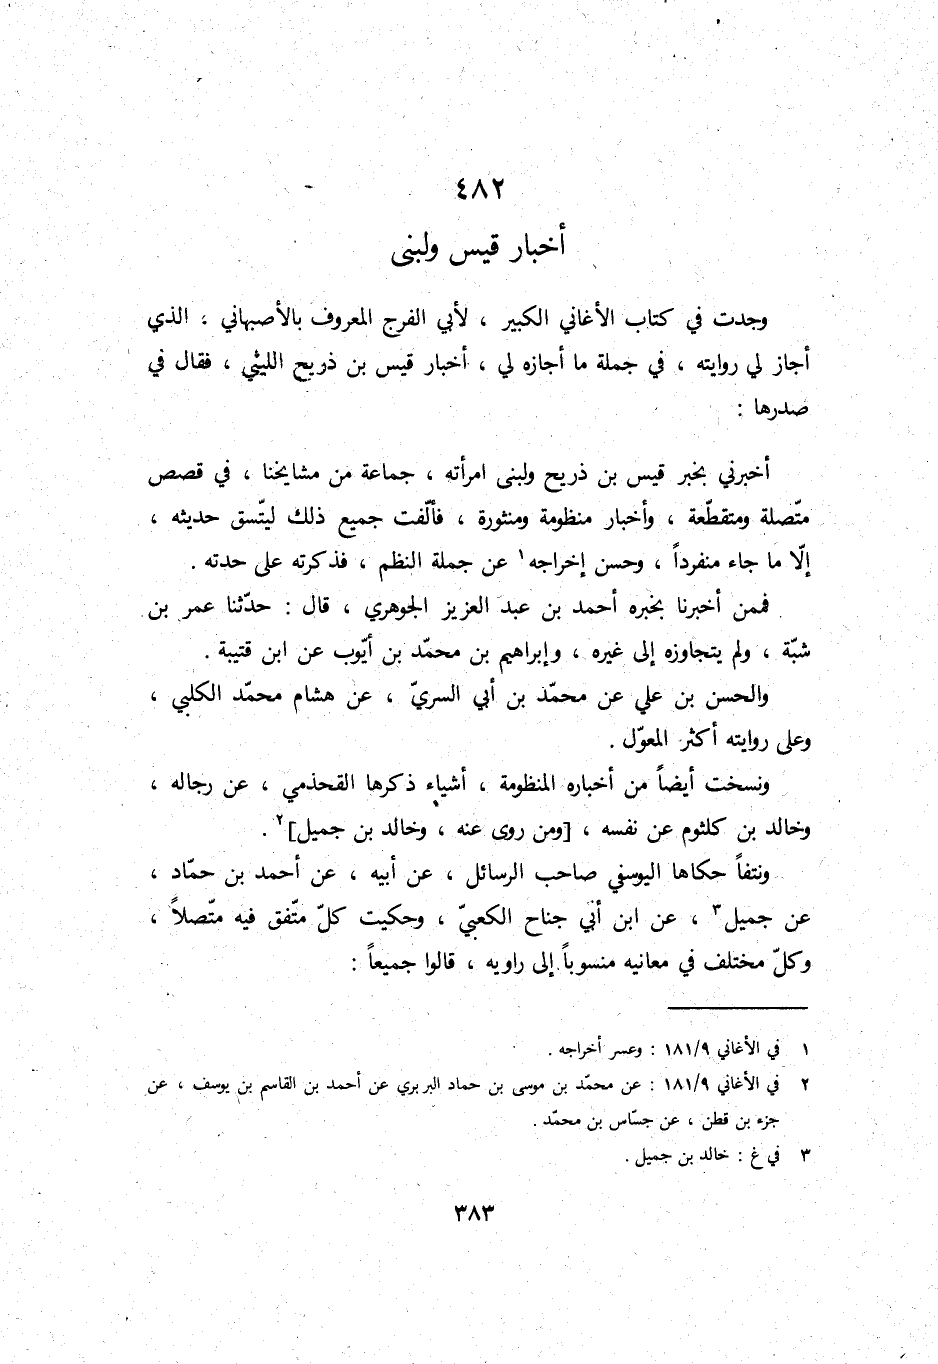 ٤٨٢
أخبار قيس ولبنى
وجدت في كتاب الأغاني الكبير ، لأبي الفرج المعروف بالأصبهاني ، الذي
أجاز لي روايته ، في جملة ما أجازه لي ، أخبار قيس بن ذريح الليثي ، فقال في
صدرها :
أخبرني بخبر قيس بن ذريح ولبنى امرأته ، جماعة من مشايخنا ، في قصص
متّصلة ومتقطّعة ، وأخبار منظومة ومنثورة ، فألّفت جميع ذلك ليتّسق حديثه ،
إلّا ما جاء منفرداً ، وحسن إخراجه١ عن جملة النظم ، فذكرته على حدته .
فممن أخبرنا بخبره أحمد بن عبد العزيز الجوهري ، قال : حدّثنا عمر بن
شبّة ، ولم يتجاوزه إلى غيره ، وإبراهيم بن محمّد بن أيّوب عن ابن قتيبة .
والحسن بن علي عن محمّد بن أبي السريّ ، عن هشام محمّد الكلبي ،
وعلى روايته أكثر المعوّل .
ونسخت أيضاً من أخباره المنظومة ، أشياء ذكرها القحذمي ، عن رجاله ،
وخالد بن كلثوم عن نفسه ، [ومن روى عنه ، وخالد بن جميل]٢ .
ونتفاً حكاها اليوسفي صاحب الرسائل ، عن أبيه ، عن أحمد بن حمّاد ،
عن جميل٣ ، عن ابن أبي جناح الكعبيّ ، وحكيت كلّ متّفق فيه متّصلاً ،
وكلّ مختلف في معانيه منسوباً إلى راويه ، قالوا جميعاً :
١ في الأغاني ١٨١/٩ : وعسر أخراجه .
٢ في الأغاني ١٨١/٩ : عن محمّد بن موسى بن حماد البربري عن أحمد بن القاسم بن يوسف ، عن
جزء بن قطن ، عن جسّاس بن محمّد .
٣ في غ : خالد بن جميل .
٣٨٣